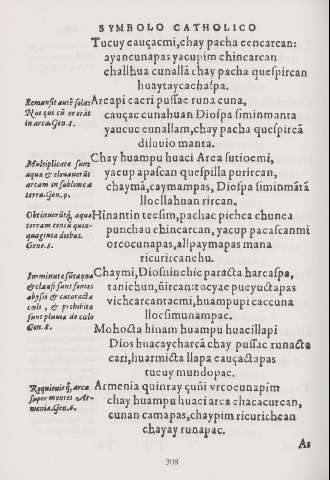 SYMBOLO CATHOLICO
Tucuy cauçacmi, chay pacha çencarcan:
ayancunapas yacupim chincarcan
challhua cunallã chay pacha quespircan
huaytaycachaspa.
Remansit autẽ solus
Noe qui cũ eo erãt
in arca. Gen. 8.
Arcapi caeri pussac runa cuna,
cauçac cunahuan Diospa siminmanta
yaucuc cunallam, chay pacha quespircã
diluuio manta.
Multiplicate sunt
aqua & eleuauerũt
arcam in sublime à
terra. Gen. 9.
Chay huampu huaci Arca sutioemi,
yacup apascan quespilla purircan,
chaymã, caymampas, Diospa siminmãtã
llocllahuan rircan.
Obtinuerũtq, aqua
terram centũ quin-
quaginta diebus.
Gene. 8.
Hinantin tecsim, pachac pichca chunca
punchau chincarcan, yacup pacascanmi
orcocunapas, allpaymapas mana
ricurircanchu.
Imminutæ sũt aquæ
& clausi sunt fontes
abyssi & cataractæ
cæli, & prohibitæ
sunt pluuiæ de cælo
Gen. 8.
Chaymi, Diosninchic paracta harcaspa,
tanichun, ñircan: tocyac pucyuctapas
vichcarcantacmi, huampupi caccuna
llocsimunampac.
Mohocta hinam huampu huacillapi
Dios huacaycharcã chay pussac runacta
cari, huarmicta llapa cauçactapas
tucuy mundopac.
Requieuitq́, arca
super montes Ar-
meniæ. Gen. 8.
Armenia quinray çuñi vrcocunapim
chay huampu huaci arca chacacurcan,
cunan camapas, chaypim ricurichcan
chayay runapac.
As
308